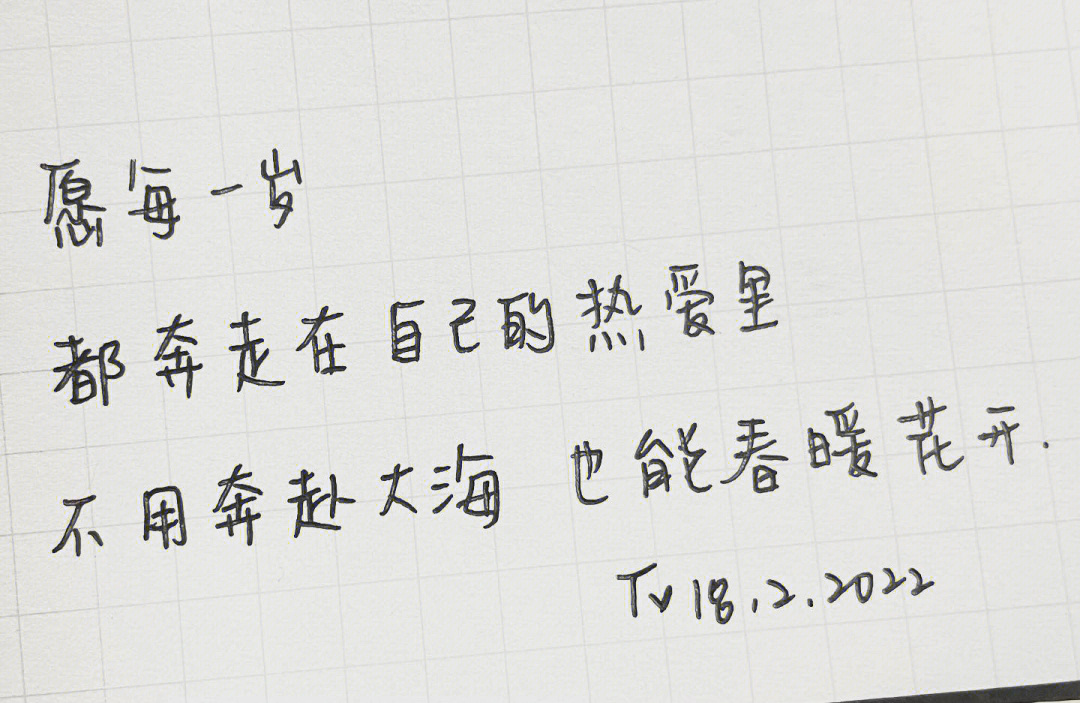 愿每一岁
都奔走在自己的热爱里
不用奔赴大海 也能春暖花开.
Tv 18.2.2022